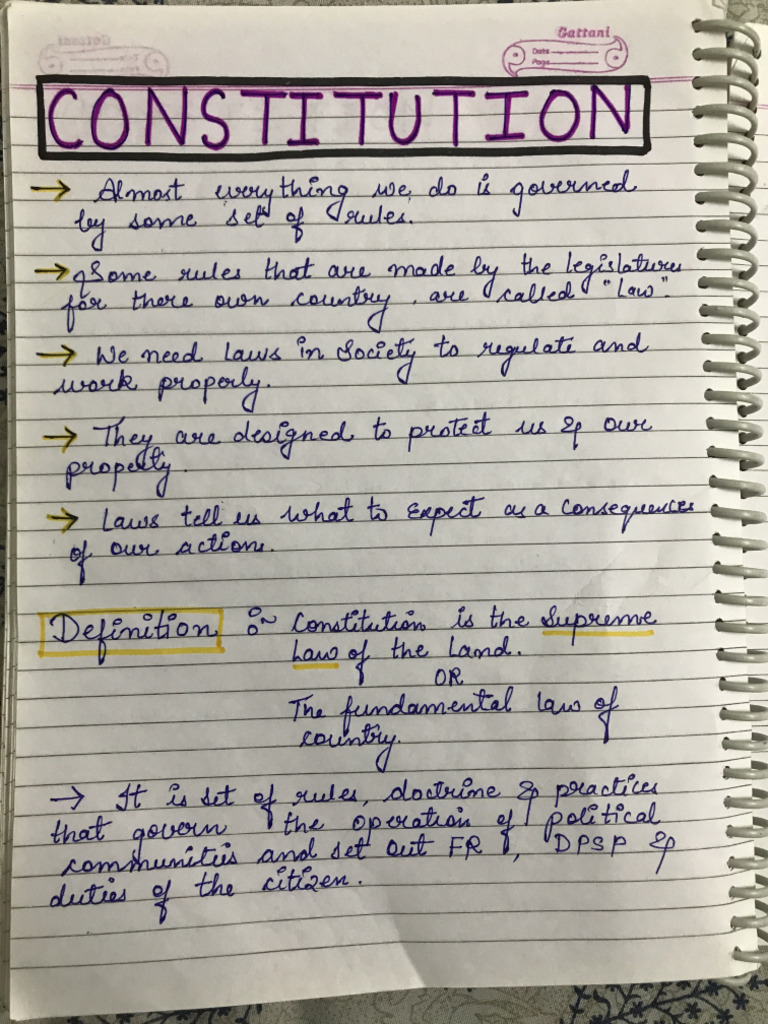 Gattani
Date
Page
CONSTITUTION
→ Almost everything we do is governed
by some set of rules.
→ Some rules that are made by the legislatures
for there own country, are called "Law".
→ We need laws in Society to regulate and
work properly.
→ They are designed to protect us & our
property.
→ Laws tell us what to Expect as a consequences
of our actions.
Definition :~ Constitution is the Supreme
Law of the Land.
OR
The fundamental law of
country.
→ It is set of rules, doctrine & practices
that govern the operation of political
communities and set out FR, DPSP &
duties of the citizen.